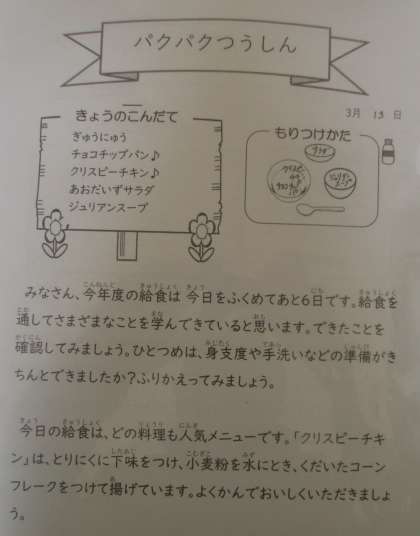 パクパクつうしん
3月 13日
きょうのこんだて
ぎゅうにゅう
チョコチップパン♪
クリスピーチキン♪
あおだいずサラダ
ジュリアンスープ
もりつけかた
サラダ
みなさん、今年度の給食は今日をふくめてあと6日です。給食を
通してさまざまなことを学んできていると思います。できたことを
確認してみましょう。ひとつめは、身支度や手洗いなどの準備がき
ちんとできましたか？ふりかえってみましょう。
今日の給食は、どの料理も人気メニューです。「クリスピーチキ
ン」は、とりにくに下味をつけ、小麦粉を水にとき、くだいたコーン
フレークをつけて揚げています。よくかんでおいしくいただきましょ
う。